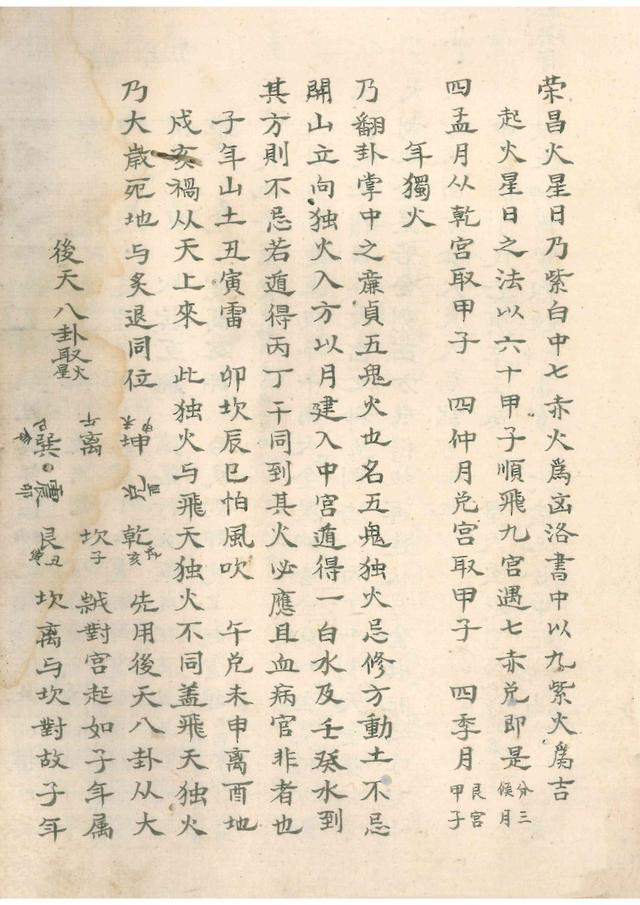 荣昌火星日乃紫白中七赤火爲凶洛書中以九紫火爲吉
起火星日之法以六十甲子順飛九宫遇七赤兑即是分三候月
四孟月从乾宫取甲子 四仲月兑宫取甲子 四季月艮宫甲子
年獨火
乃翻卦掌中之廉貞五鬼火也名五鬼独火忌修方動土不忌
開山立向独火入方以月建入中宫遁得一白水及壬癸水到
其方則不忌若遁得丙丁干同到其火必應且血病官非者也
子年山土丑寅雷 卯坎辰巳怕風吹 午兑未申離酉地
戍亥禍从天上來 此独火与飛天独火不同盖飛天独火
乃大歲死地与炙退同位 坤 乾亥 先用後天八卦从大
後天八卦取火星 午離 坎子 絨對宫起如子年属
巽 震卯 艮丑 坎離与坎對故子年